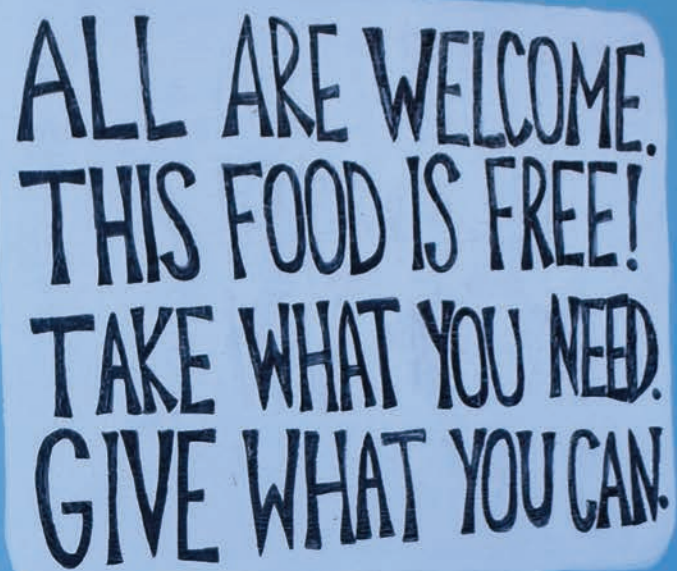 ALL ARE WELCOME.
THIS FOOD IS FREE!
TAKE WHAT YOU NEED.
GIVE WHAT YOU CAN.